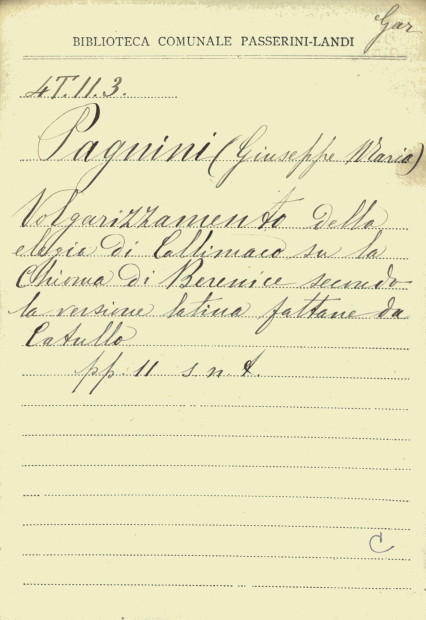 Gar
BIBLIOTECA COMUNALE PASSERINI-LANDI
4T.11.3.
Pagnini (Giuseppe Maria)
Volgarizzamento della
elegia di Callimaco su la
Chioma di Berenice secondo
la versione latina fattane da
Catullo
pp. 11 s. n. t.
C